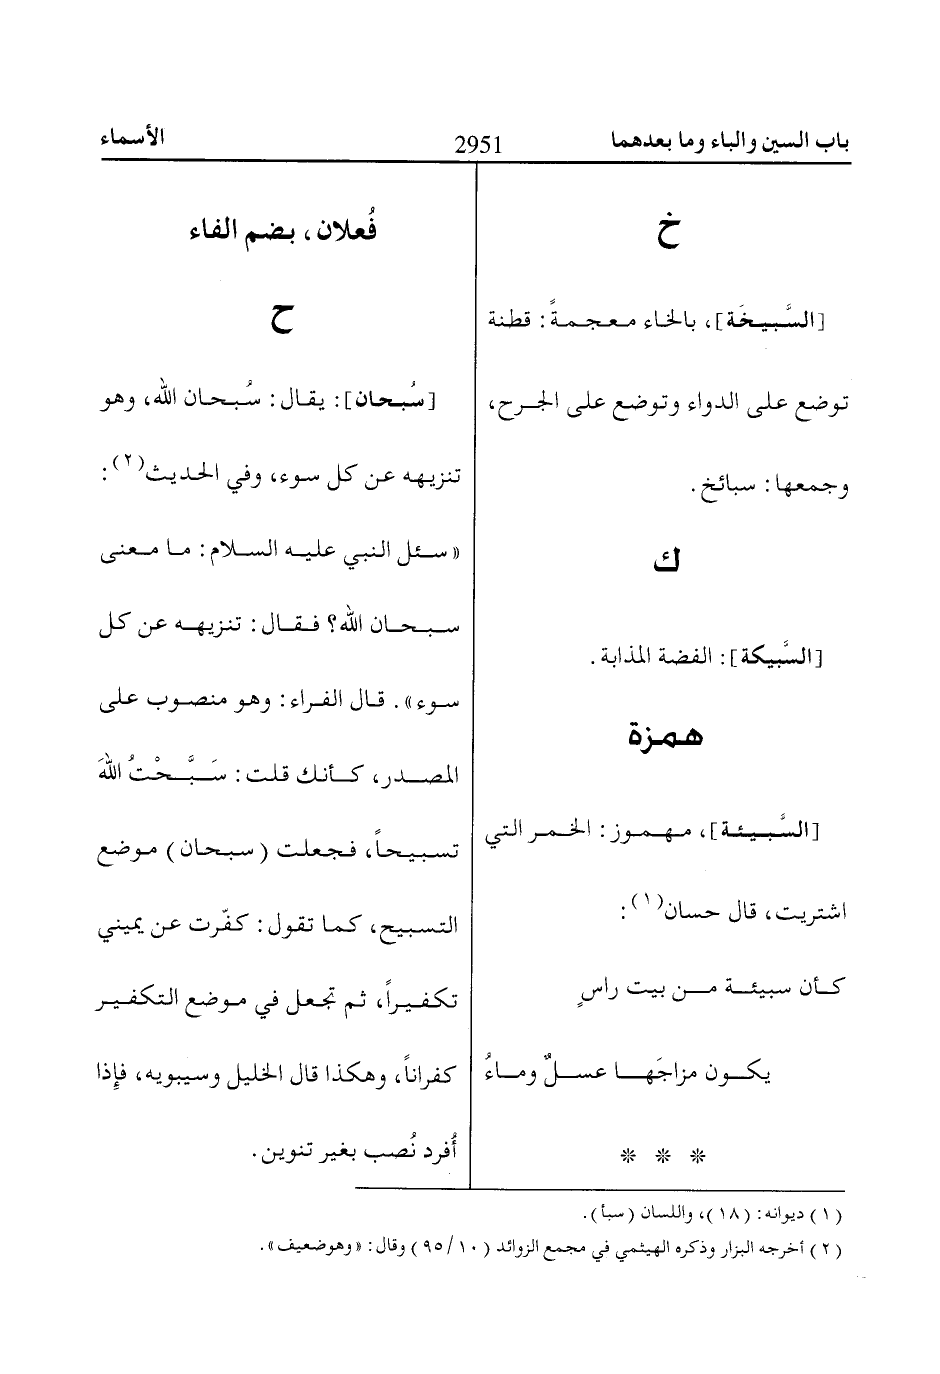 باب السين والباء وما بعدهما 2951 الأسماء
خ
[السَّبيخَة]، بالخاء معجمةً: قطنة
توضع على الدواء وتوضع على الجرح،
وجمعها: سبائخ.
ك
[السَّبيكة]: الفضة المذابة.
همزة
[السَّبيئة]، مهموز: الخمر التي
اشتريت، قال حسان(١):
كأن سبيئة من بيت راسٍ
يكون مزاجَها عسلٌ وماءُ
* * *
فُعلان، بضم الفاء
ح
[سُبحان]: يقال: سُبحان الله، وهو
تنزيهه عن كل سوء، وفي الحديث(٢):
«سئل النبي عليه السلام: ما معنى
سبحان الله؟ فقال: تنزيهه عن كل
سوء». قال الفراء: وهو منصوب على
المصدر، كأنك قلت: سَبَّحْتُ اللهَ
تسبيحاً، فجعلت (سبحان) موضع
التسبيح، كما تقول: كفّرت عن يميني
تكفيراً، ثم تجعل في موضع التكفير
كفراناً، وهكذا قال الخليل وسيبويه، فإِذا
أُفرد نُصب بغير تنوين.
(١) ديوانه: (١٨)، واللسان (سبأ).
(٢) أخرجه البزار وذكره الهيثمي في مجمع الزوائد (١٠/٩٥) وقال: «وهوضعيف».